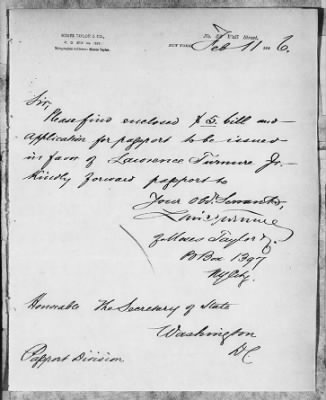 MOSES TAYLOR & CO.,
P. O. BOX No. 1397
No. 52 Wall Street,
NEW YORK Feb 11 1886.
Sir,
Please find enclosed $5. bill and
application for passport to be issued
in favor of Lawrence Turnure Jr.
Kindly forward passport to
Your obt. Servants,
Lawc Turnure
c/o Moses Taylor & Co.
P O Box 1397
NY City.
Honorable The Secretary of State
Washington
D C
Passport Division